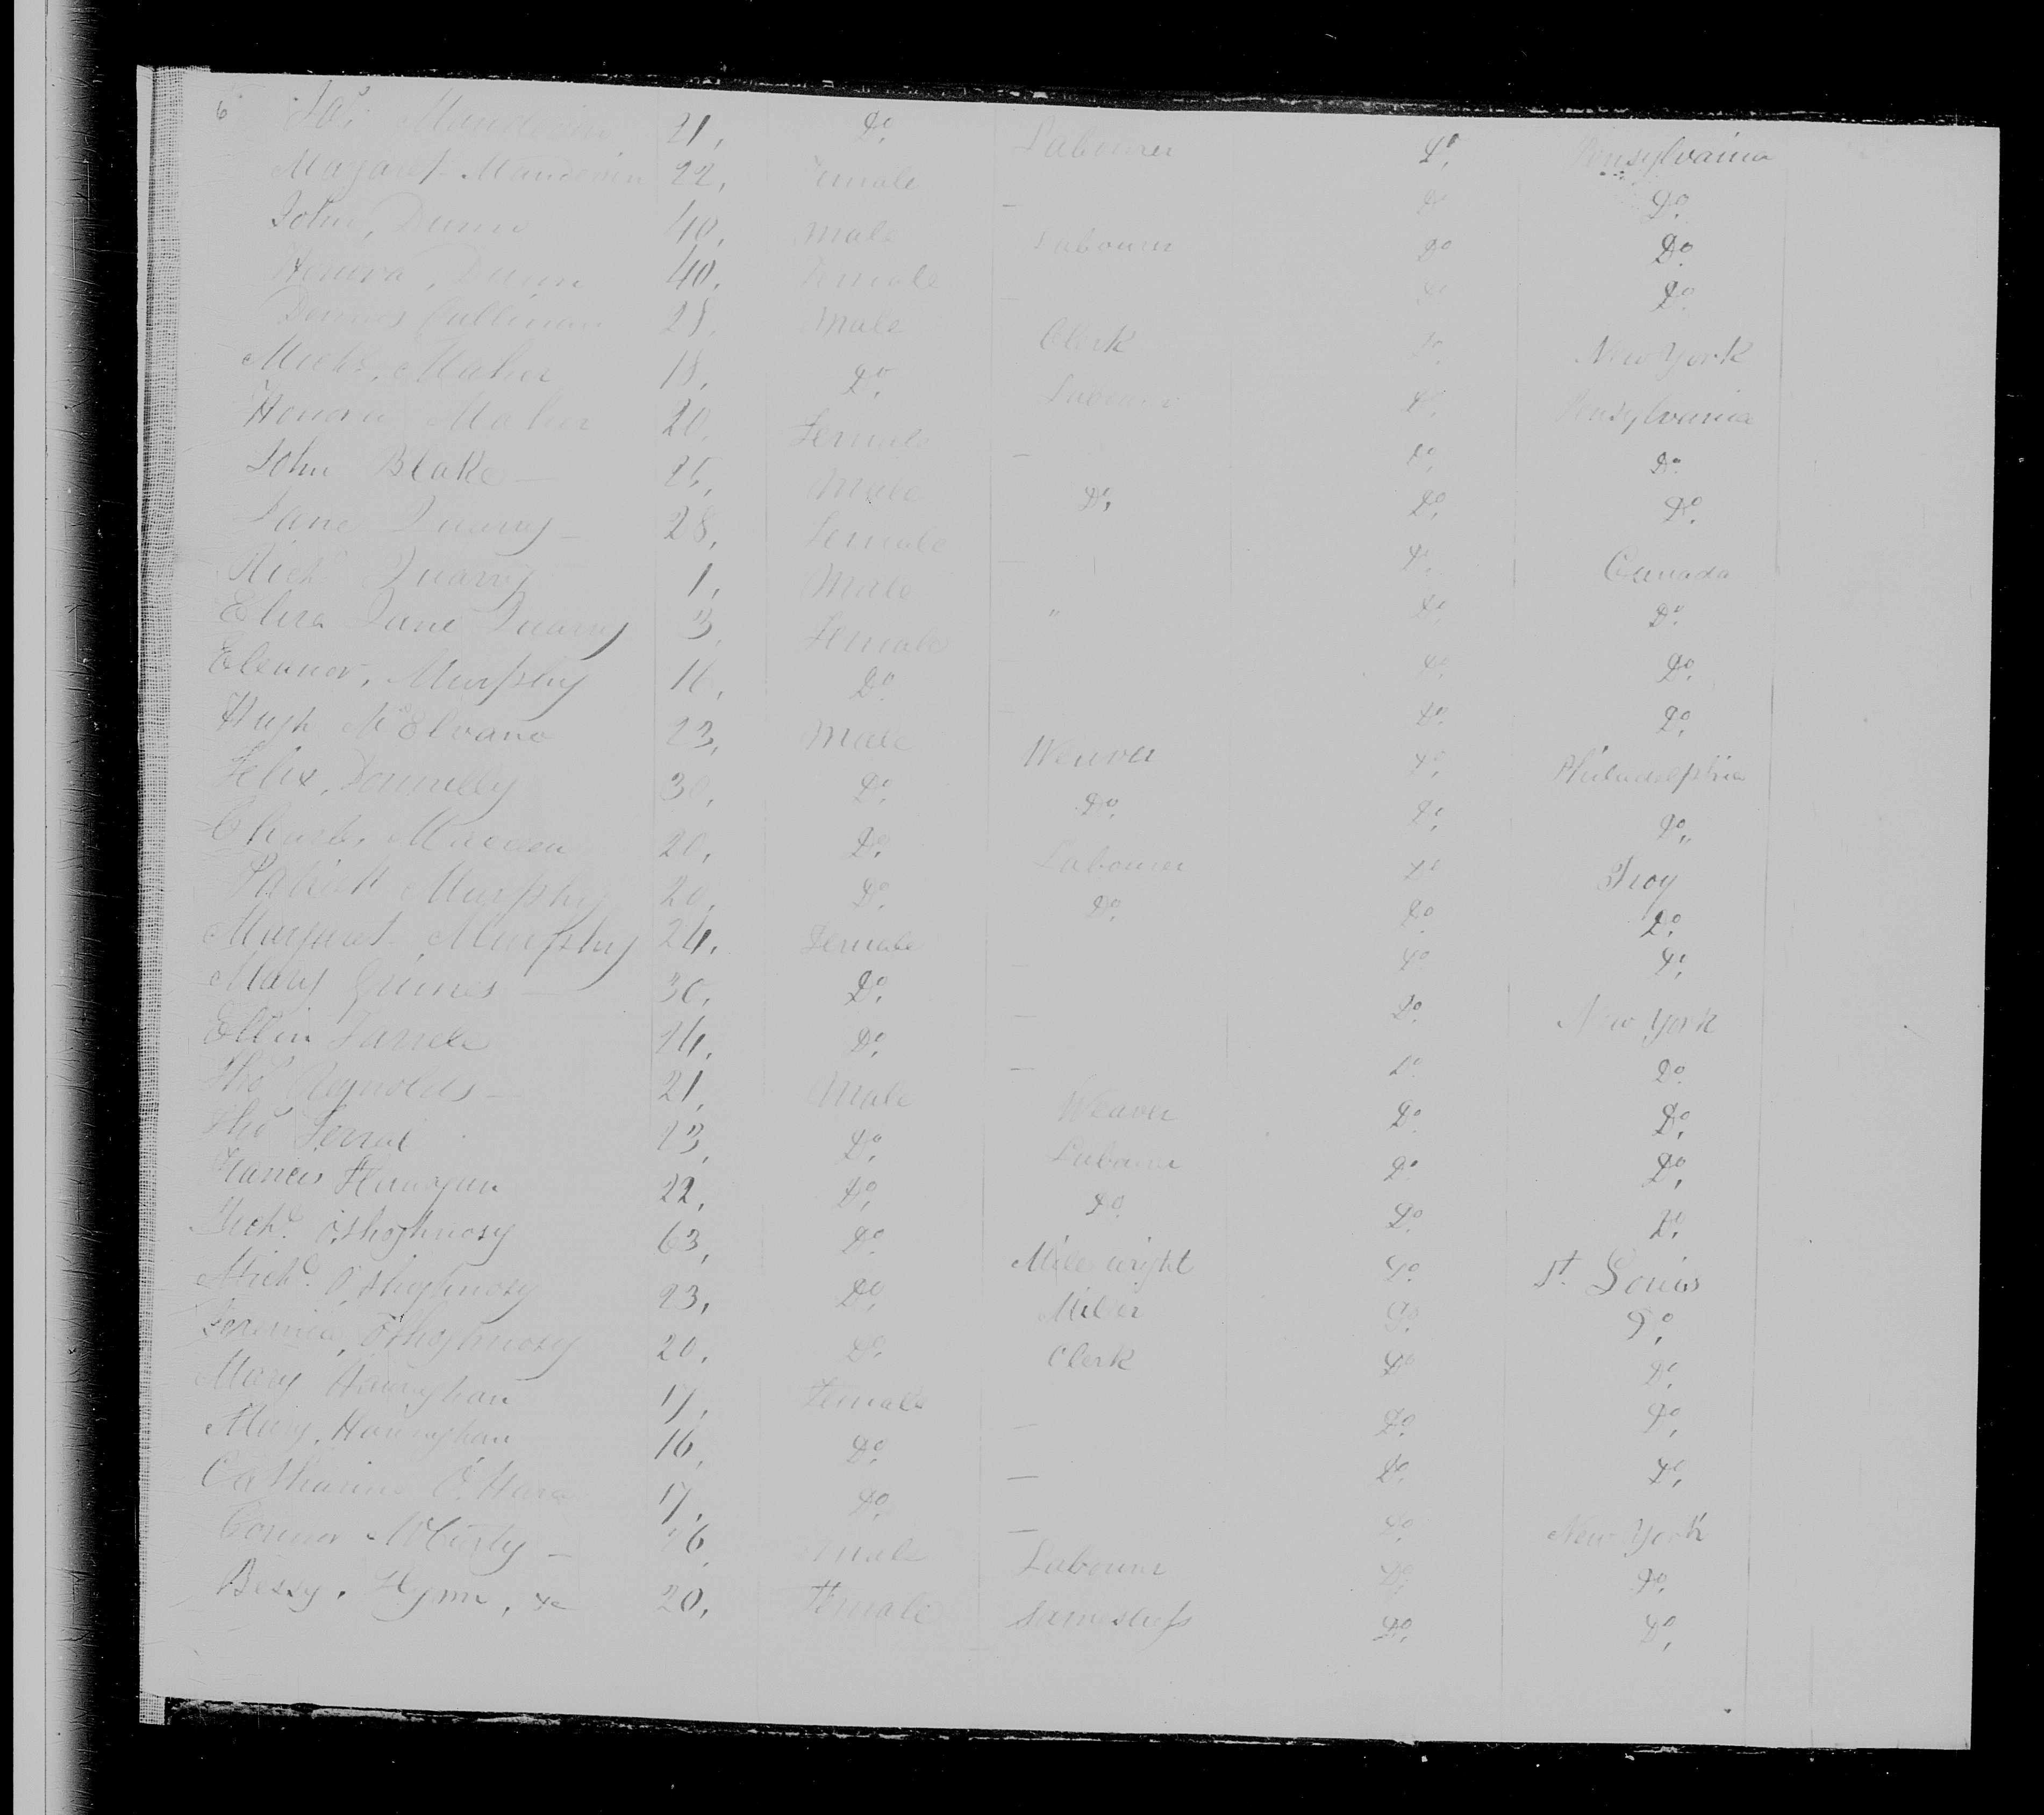 6 Jas. Mauderin 21, Do. Labourer Do. Pensylvania
Magaret Mauderin 22, Female — Do Do.
John, Dunn 40, Male Labourer Do Do.
Honora, Dunn 40, Female — Do Do.
Dennis Callinan Male Clerk Do. New York
Mich. Maher 18, Do. Labourer Do. Pensylvania
Honora Maher 20, Female — Do. Do.
John Blake — 25, Male Do. Do. Do.
Jane Quarry — 28, Female — Do. Canada
Rich Quarry 1, Male " Do. Do.
Eliza Jane Quarry 3, Female Do. Do.
Eleanor, Murphy 16, Do. — Do. Do.
Hugh McElvano 23, Male Weaver Do. Philadelphia
Felix, Donnelly 30, Do. Do. Do. Do.,
20, Do. Labourer Do Troy
Patrick Murphy 20, Do. Do. Do. Do.
Margaret Murphy 24, Female — Do Do.
Mary Grimes — 30, Do. — Do. New York
Ellin Farrele 24, Do. — Do. Do.
Tho Reynolds — 21, Male Weaver Do. Do.
Tho Ferral 23, Do. Labourer Do. Do.
Francis 22, Do. Do. Do. Do.
O'Shoghnosy 63, Do. Mile wright Do. St. Louis
Mich. O'Shughnosy 23, Do. Miler Do. Do.
O'Shoghnosy 20, Do. Clerk Do Do.
Mary 17, Female — Do. Do.
Mary, Hauraghan 16, Do. — Do. Do.
Catharine O'Hara 17, Do. — Do. New York
Connor — 26, Male Labourer Do. Do.
Bessy, Flynn, &c 20, Female Do. Do.